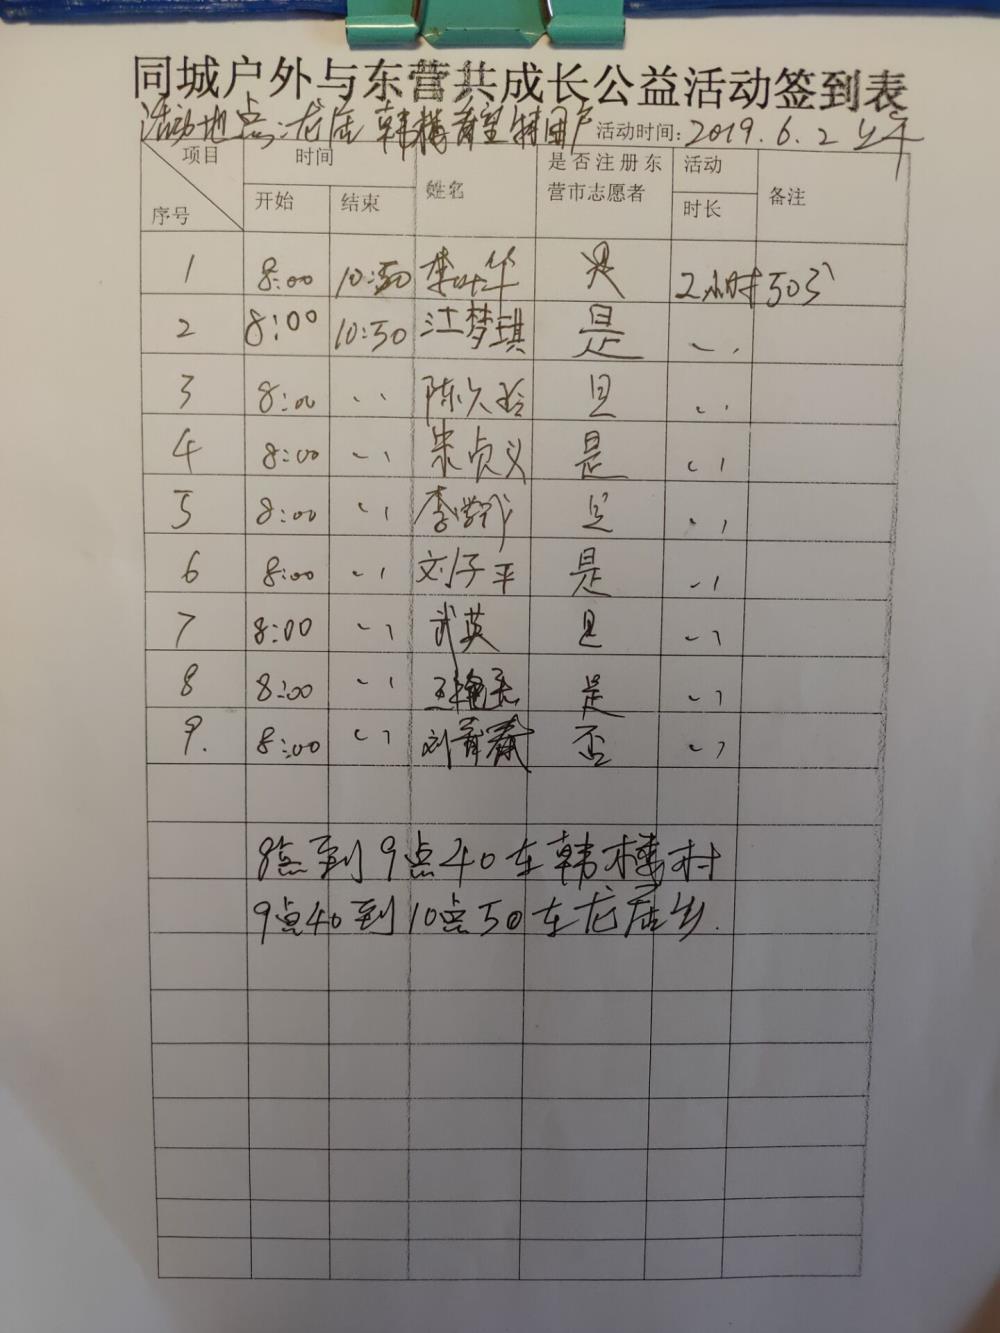 同城户外与东营共成长公益活动签到表
活动地点:龙居 韩楼 活动时间:2019.6.2 上午
项目 时间 姓名 是否注册东营市志愿者 活动时长 备注
序号 开始 结束
1 8:00 10:50 华 是 2小时50分
2 8:00 10:50 江梦琪 是 〃
3 8:00 〃 陈 是 〃
4 8:00 〃 贞义 是 〃
5 8:00 〃 李 是 〃
6 8:00 〃 刘子平 是 〃
7 8:00 〃 武英 是 〃
8 8:00 〃 王艳 是 〃
9. 8:00 〃 刘青春 否 〃
8点到9点40在韩楼村
9点40到10点50在龙居